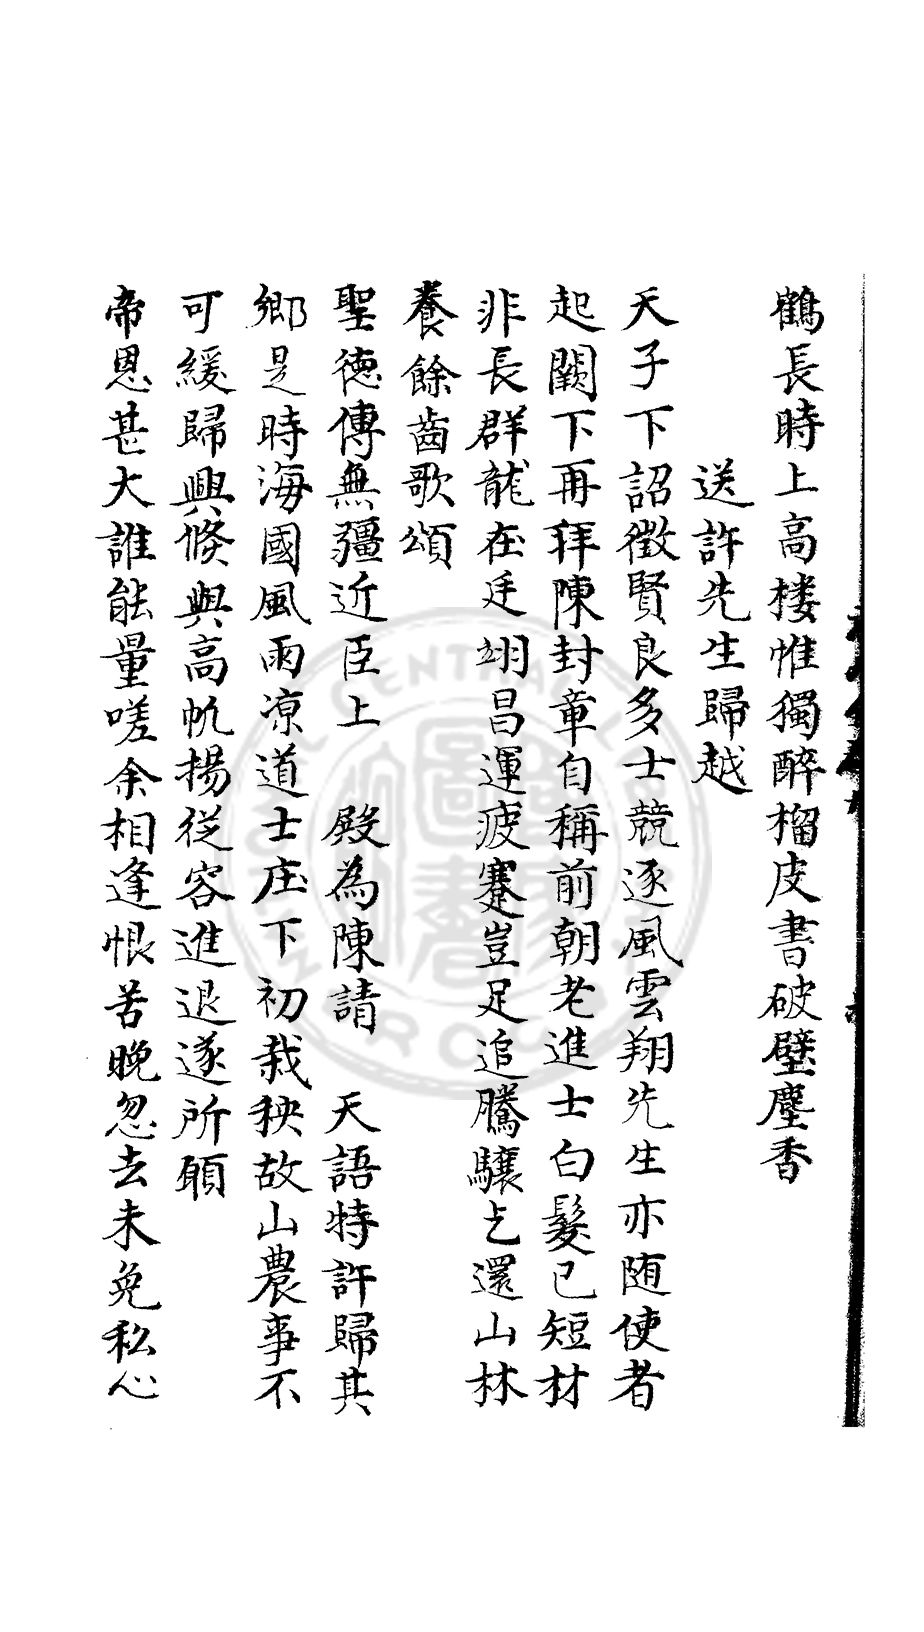 鶴長時上高樓惟獨醉榴皮書破壁塵香
送許先生歸越
天子下詔徵賢良多士競逐風雲翔先生亦随使者
起闕下再拜陳封章自稱前朝老進士白髮已短材
非長群龍在廷翊昌運疲蹇豈足追騰驤乞還山林
養餘齒歌頌
聖德傳無疆近臣上 殿為陳請 天語特許歸其
鄉是時海國風雨凉道士庄下初栽秧故山農事不
可緩歸興倏與高帆揚従容進退遂所願
帝恩甚大誰能量嗟余相逢恨苦晚忽去未免私心
NATIONAL CENTRAL LIBRARY